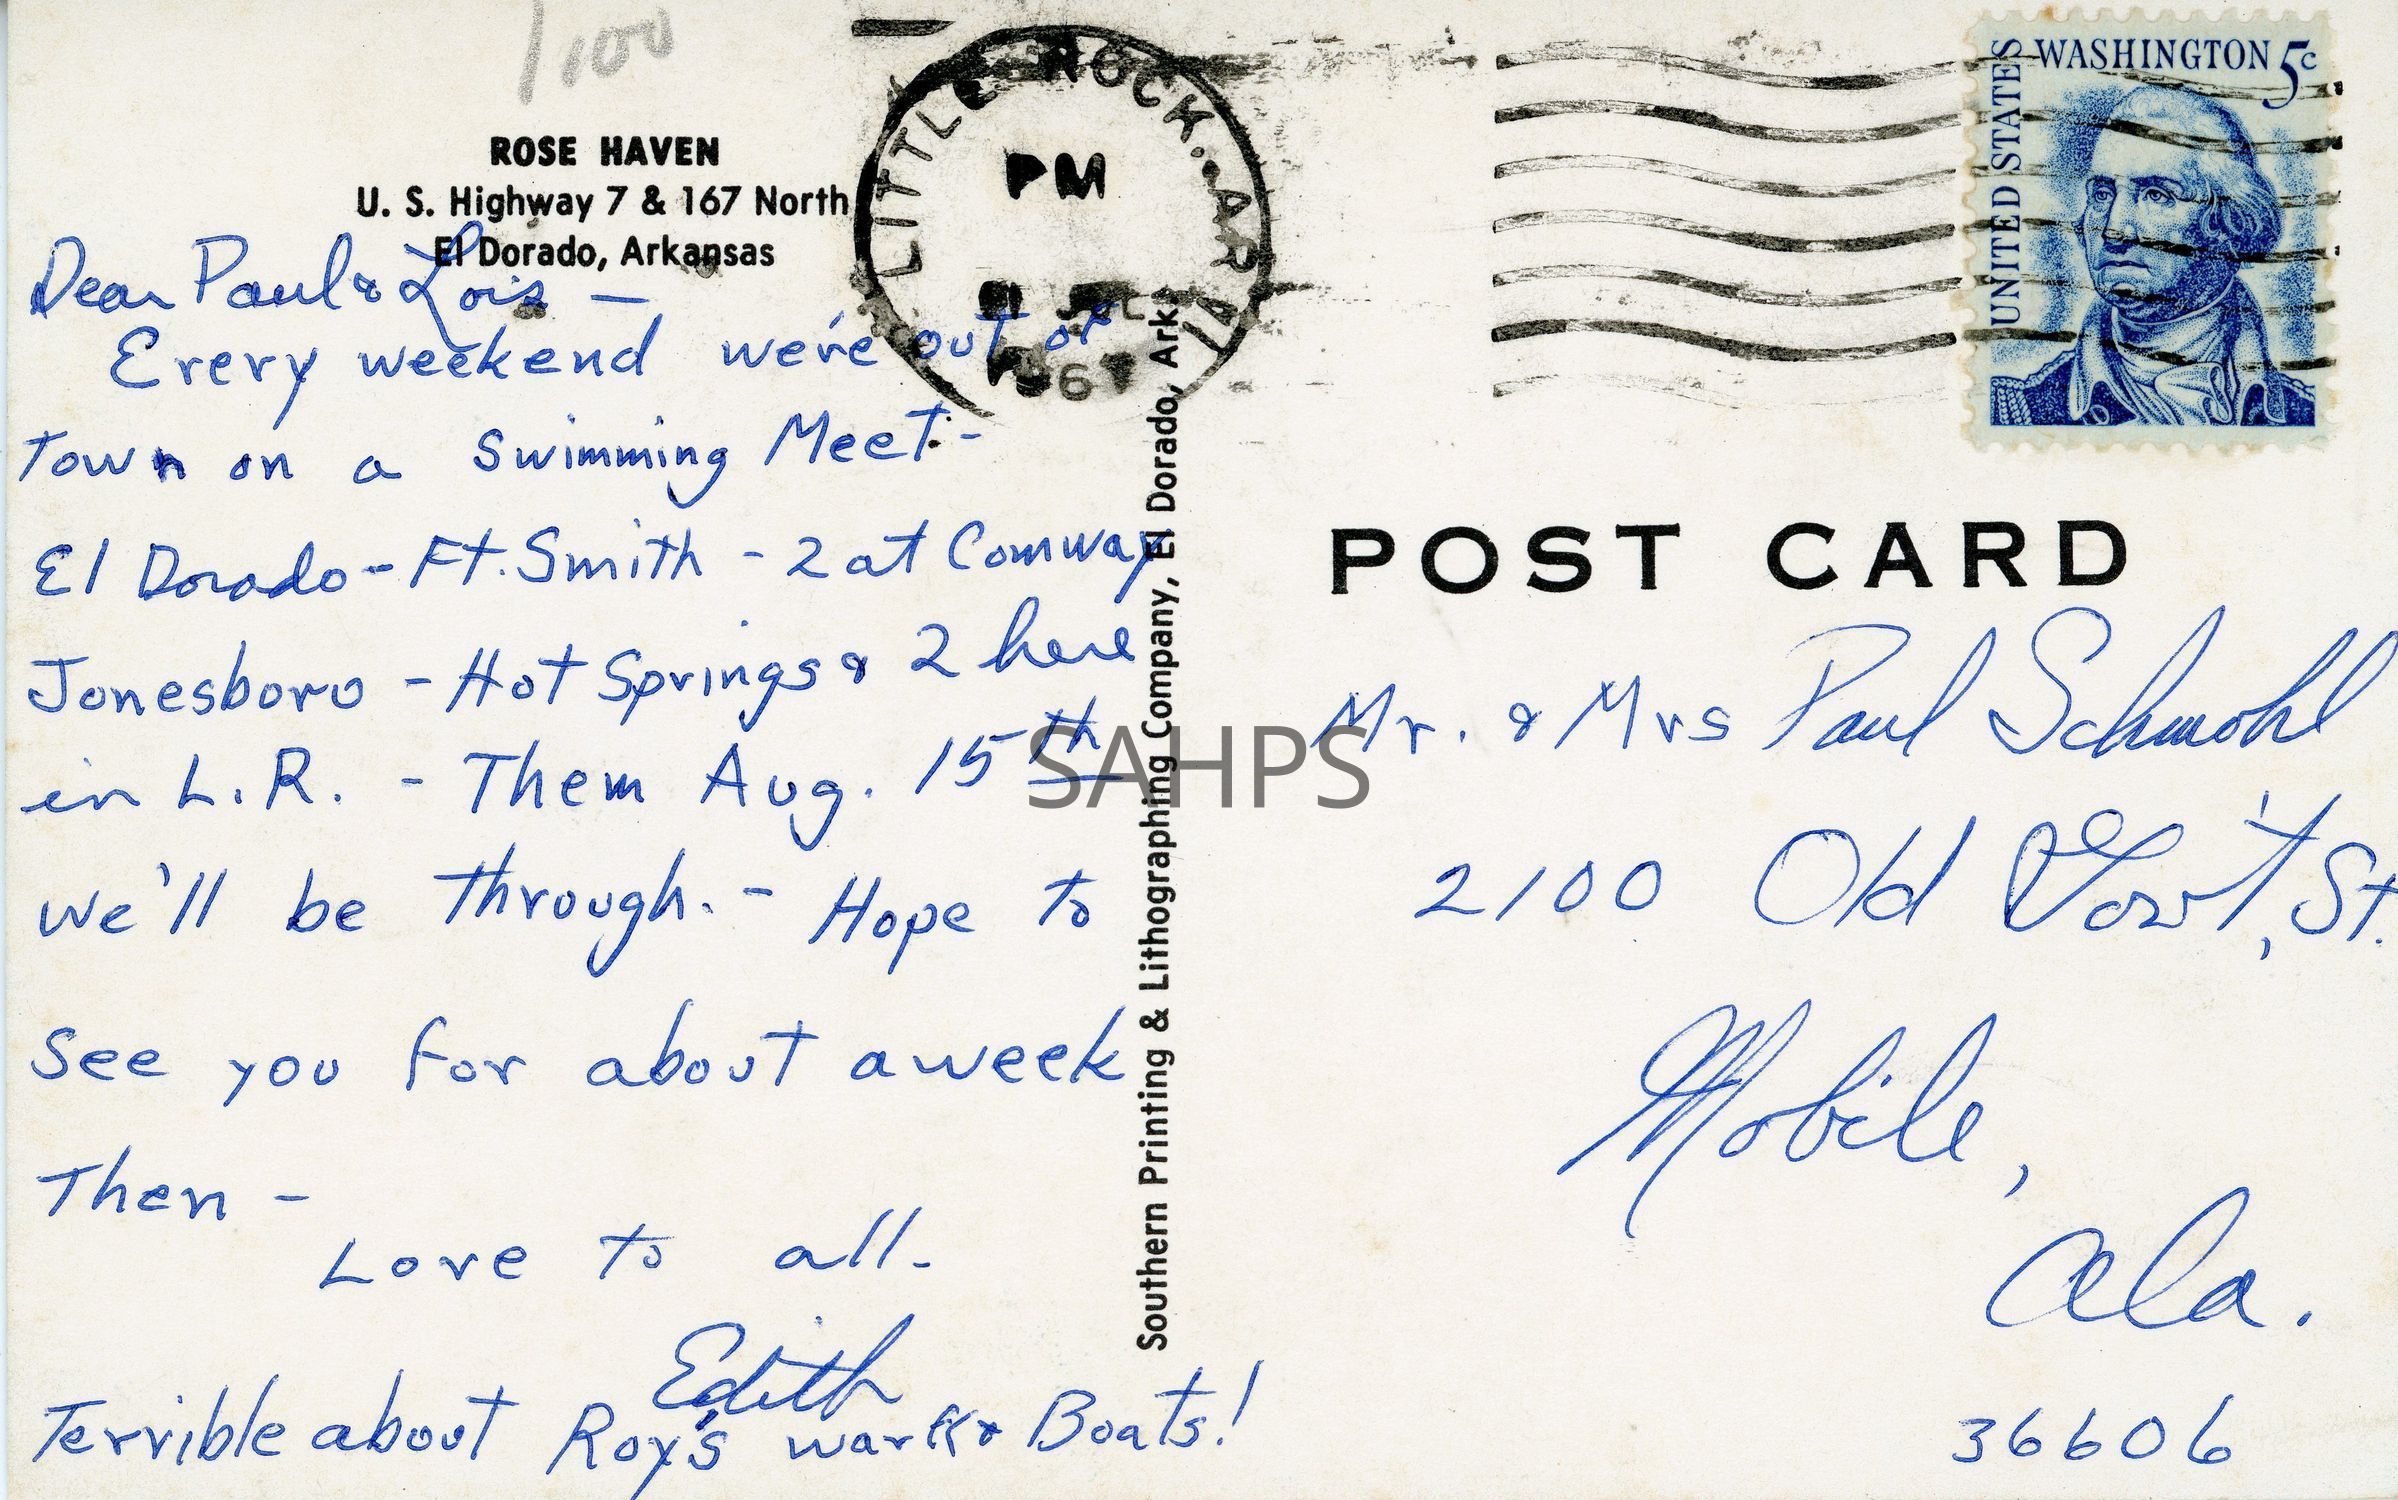 1.00
ROSE HAVEN
U. S. Highway 7 & 167 North
El Dorado, Arkansas
LITTLE ROCK, AR
PM
WASHINGTON 5c
UNITED STATES
Dear Paul & Lois —
Every weekend we're out of
Town on a Swimming Meet -
El Dorado - Ft. Smith - 2 at Comway
Jonesboro - Hot Springs & 2 here
in L.R. - Them Aug. 15th
we'll be through. - Hope to
See you for about a week
Then -
Love to all.
Edith
Terrible about Roy's work & Boats!
Southern Printing & Lithographing Company, El Dorado, Ark.
POST CARD
SAHPS
Mr. & Mrs Paul Schmohl
2100 Old Gov't, St.
Mobile,
Ala.
36606